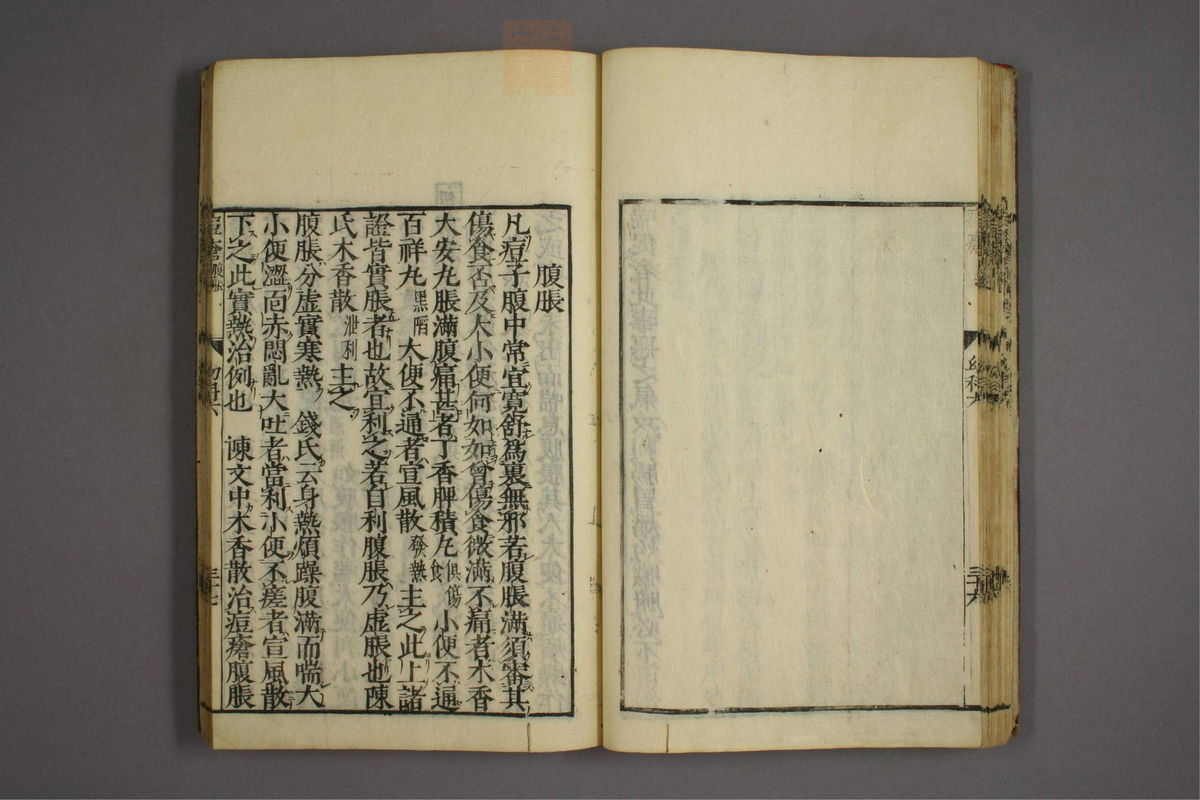 幼科六
三十六
腹脹
凡痘子腹中常宜寛舒爲裏無邪若腹脹滿須審其
傷食否及大小便何如如曾傷食微滿不痛者木香
大安丸脹滿腹痛甚者丁香脾積丸俱傷食小便不通
百祥丸黑陷大便不通者宣風散發熱主之此上諸
證皆實脹者也故宜利之若自利腹脹乃虛脹也陳
氏木香散泄利主之
腹脹分虛實寒熱 錢氏云身熱煩躁腹滿而喘大
小便澀面赤悶亂大吐者當利小便不瘥者宣風散
下之此實熱治例也 陳文中木香散治痘瘡腹脹
三十七